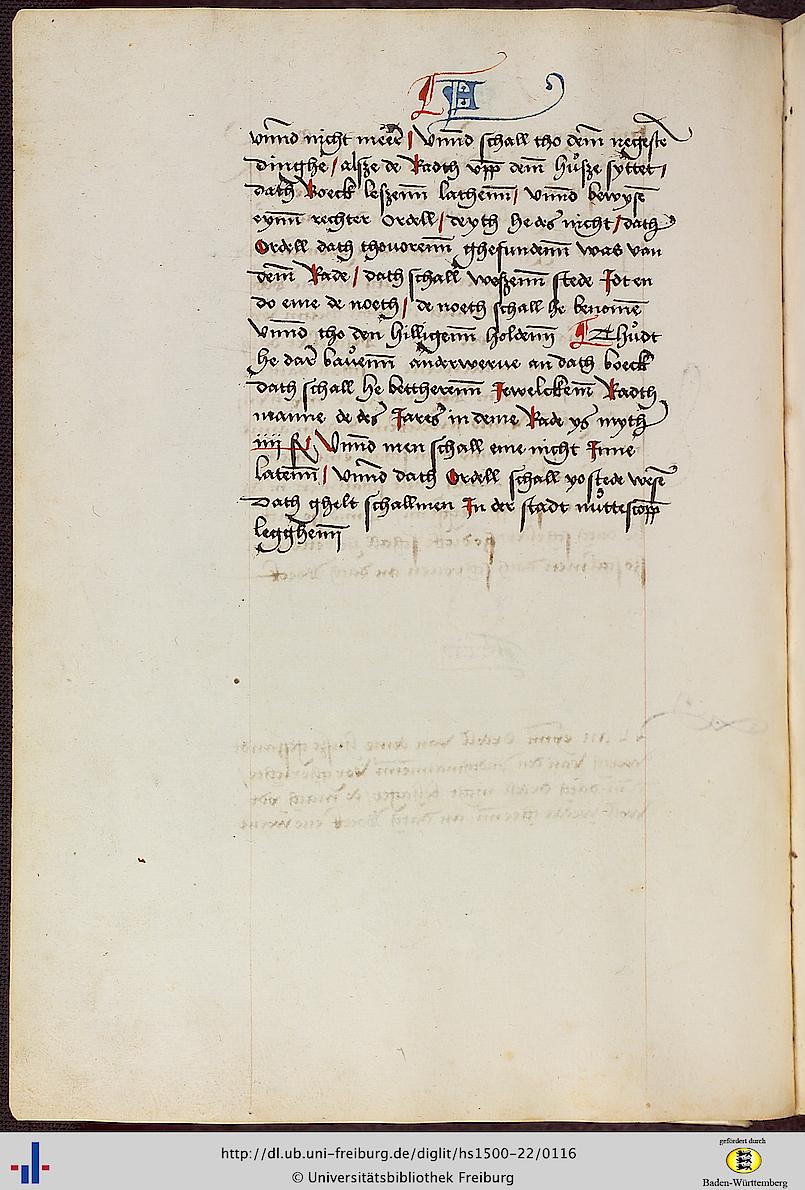 H
vnnd nicht meer / Vnnd schall tho dem negesten
dinghe / alsze de Radth vpp dem husze syttet /
dath Boeck leszenn lathenn / vnnd bewysen
eynn rechter Ordell / deyth he des nicht / dath
Ordell dath thouorenn ghefundenn was van
dem Rade / dath schall weszenn stede Idt en
do eme de noeth / de noeth schall he benomen
vnnd tho den hilligenn holdenn Thudt
he dar bauenn anderwerue an dath boeck
dath schall he bettherenn Jewelckem Radth
manne de des Jares in deme Rade ys myth
iiij ß Vnnd men schall eme nicht Inne
latenn / Vnnd dath Ordell schall yo stede wesen
Dath ghelt schallmen In der stadt muttescopp
legghenn
http://dl.ub.uni-freiburg.de/diglit/hs1500-22/0116
© Universitätsbibliothek Freiburg
gefördert durch
Baden-Württemberg